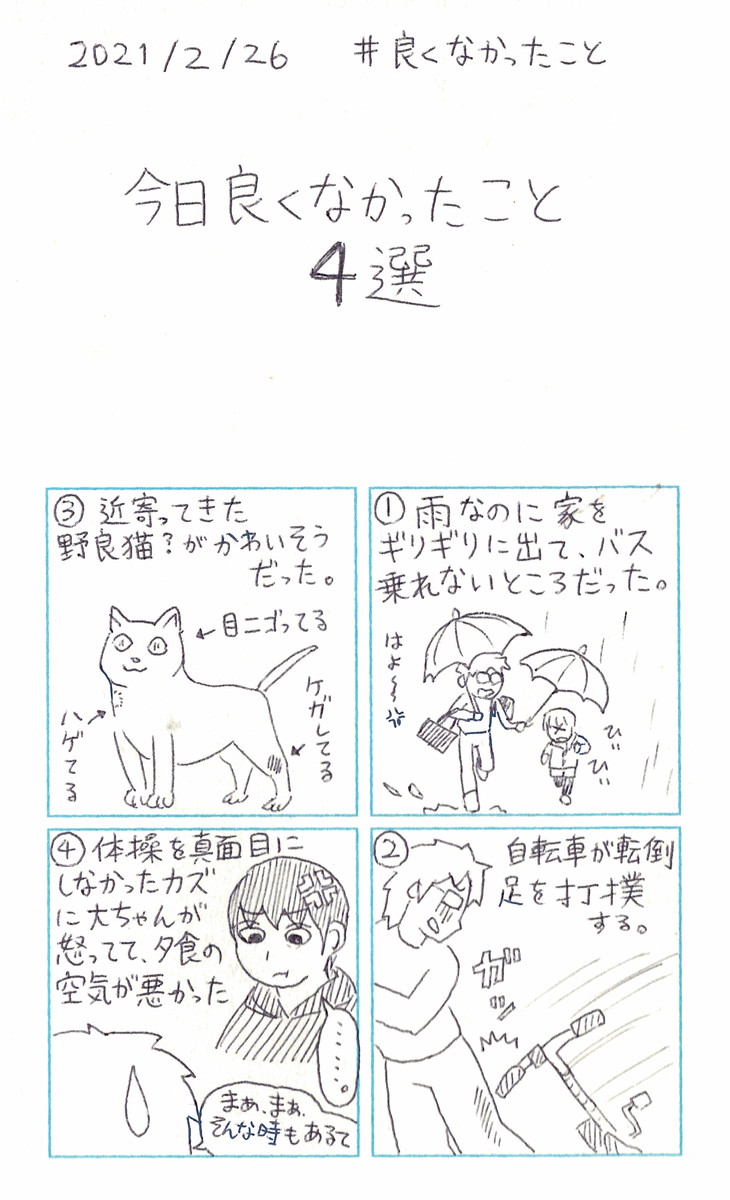 2021/2/26 #良くなかったこと
今日良くなかったこと
4選
① 雨なのに家を
ギリギリに出て、バス
乗れないところだった。
はよ〜〜
びぃ
びぃ
② 自転車が転倒
足を打撲
する。
ガッ
③ 近寄ってきた
野良猫?がかわいそう
だった。
←目ニゴってる
ケガしてる
ハゲてる
④ 体操を真面目に
しなかったカズ
に大ちゃんが
怒ってて、夕食の
空気が悪かった
……。
まぁ、まぁ、
そんな時もあるて